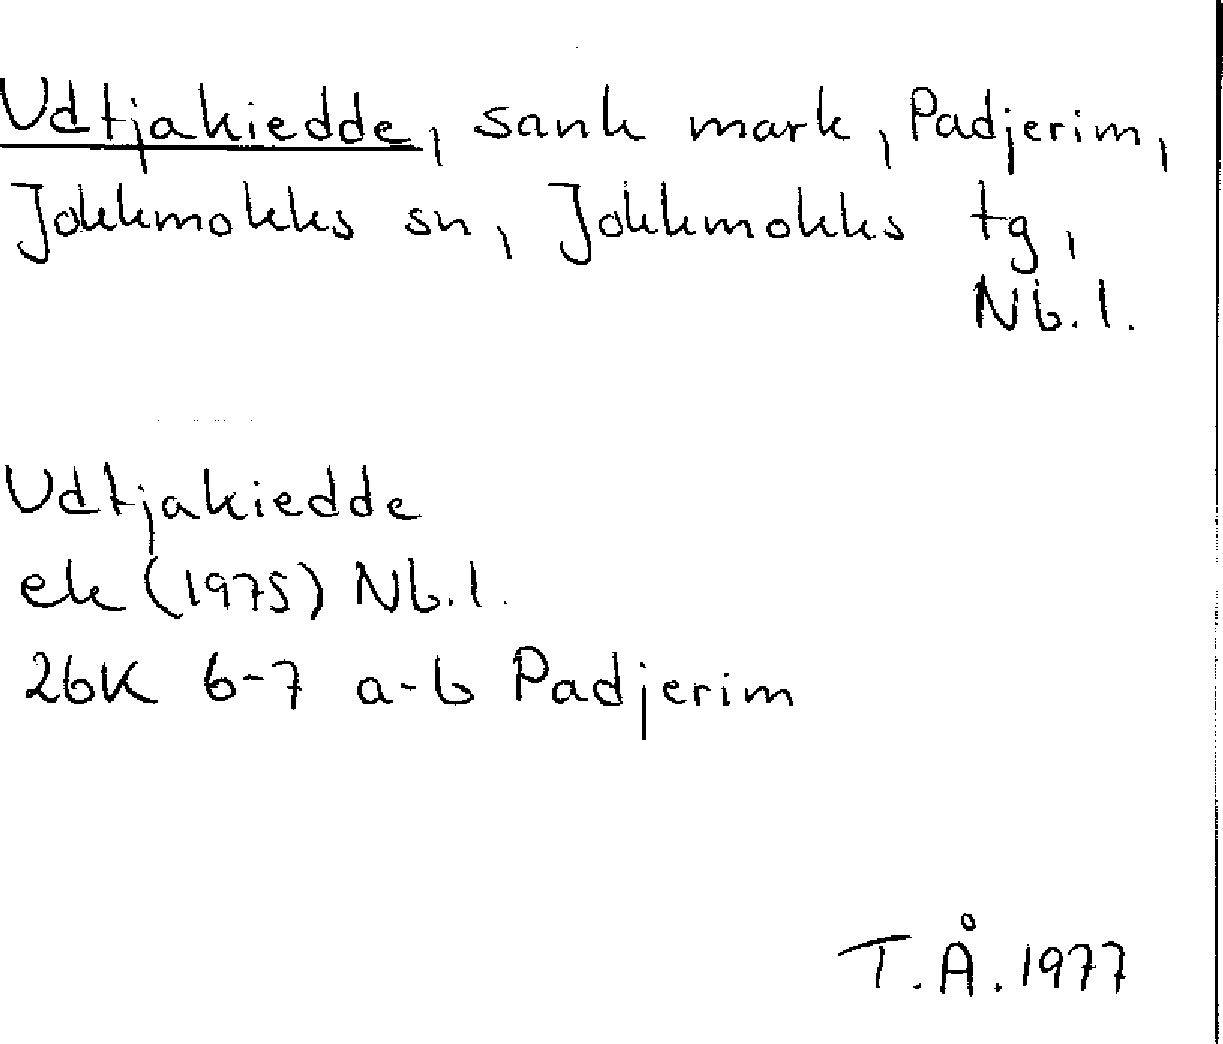 Udtjakiedde, sank mark, Padjerim,
Jokkmokks sn, Jokkmokks tg,
Nb.l.
Udtjakiedde
ek (1975) Nb.l.
26K 6-7 a-b Padjerim
T.Å. 1977